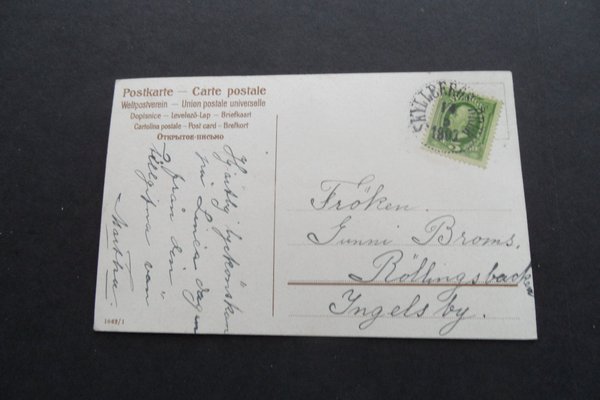 Postkarte — Carte postale
Weltpostverein — Union postale universelle
Dopisnice — Levelező-Lap — Briefkaart
Cartolina postale - Post card - Brefkort
Открытое письмо
Hjärtlig lyckönskan
på Linnea dagen
från din
tillgifna vän
Martha.
1042/1
SKYLLBERG
1907
Fröken
Gunni Broms.
Röllingsbacken
Ingelsby.